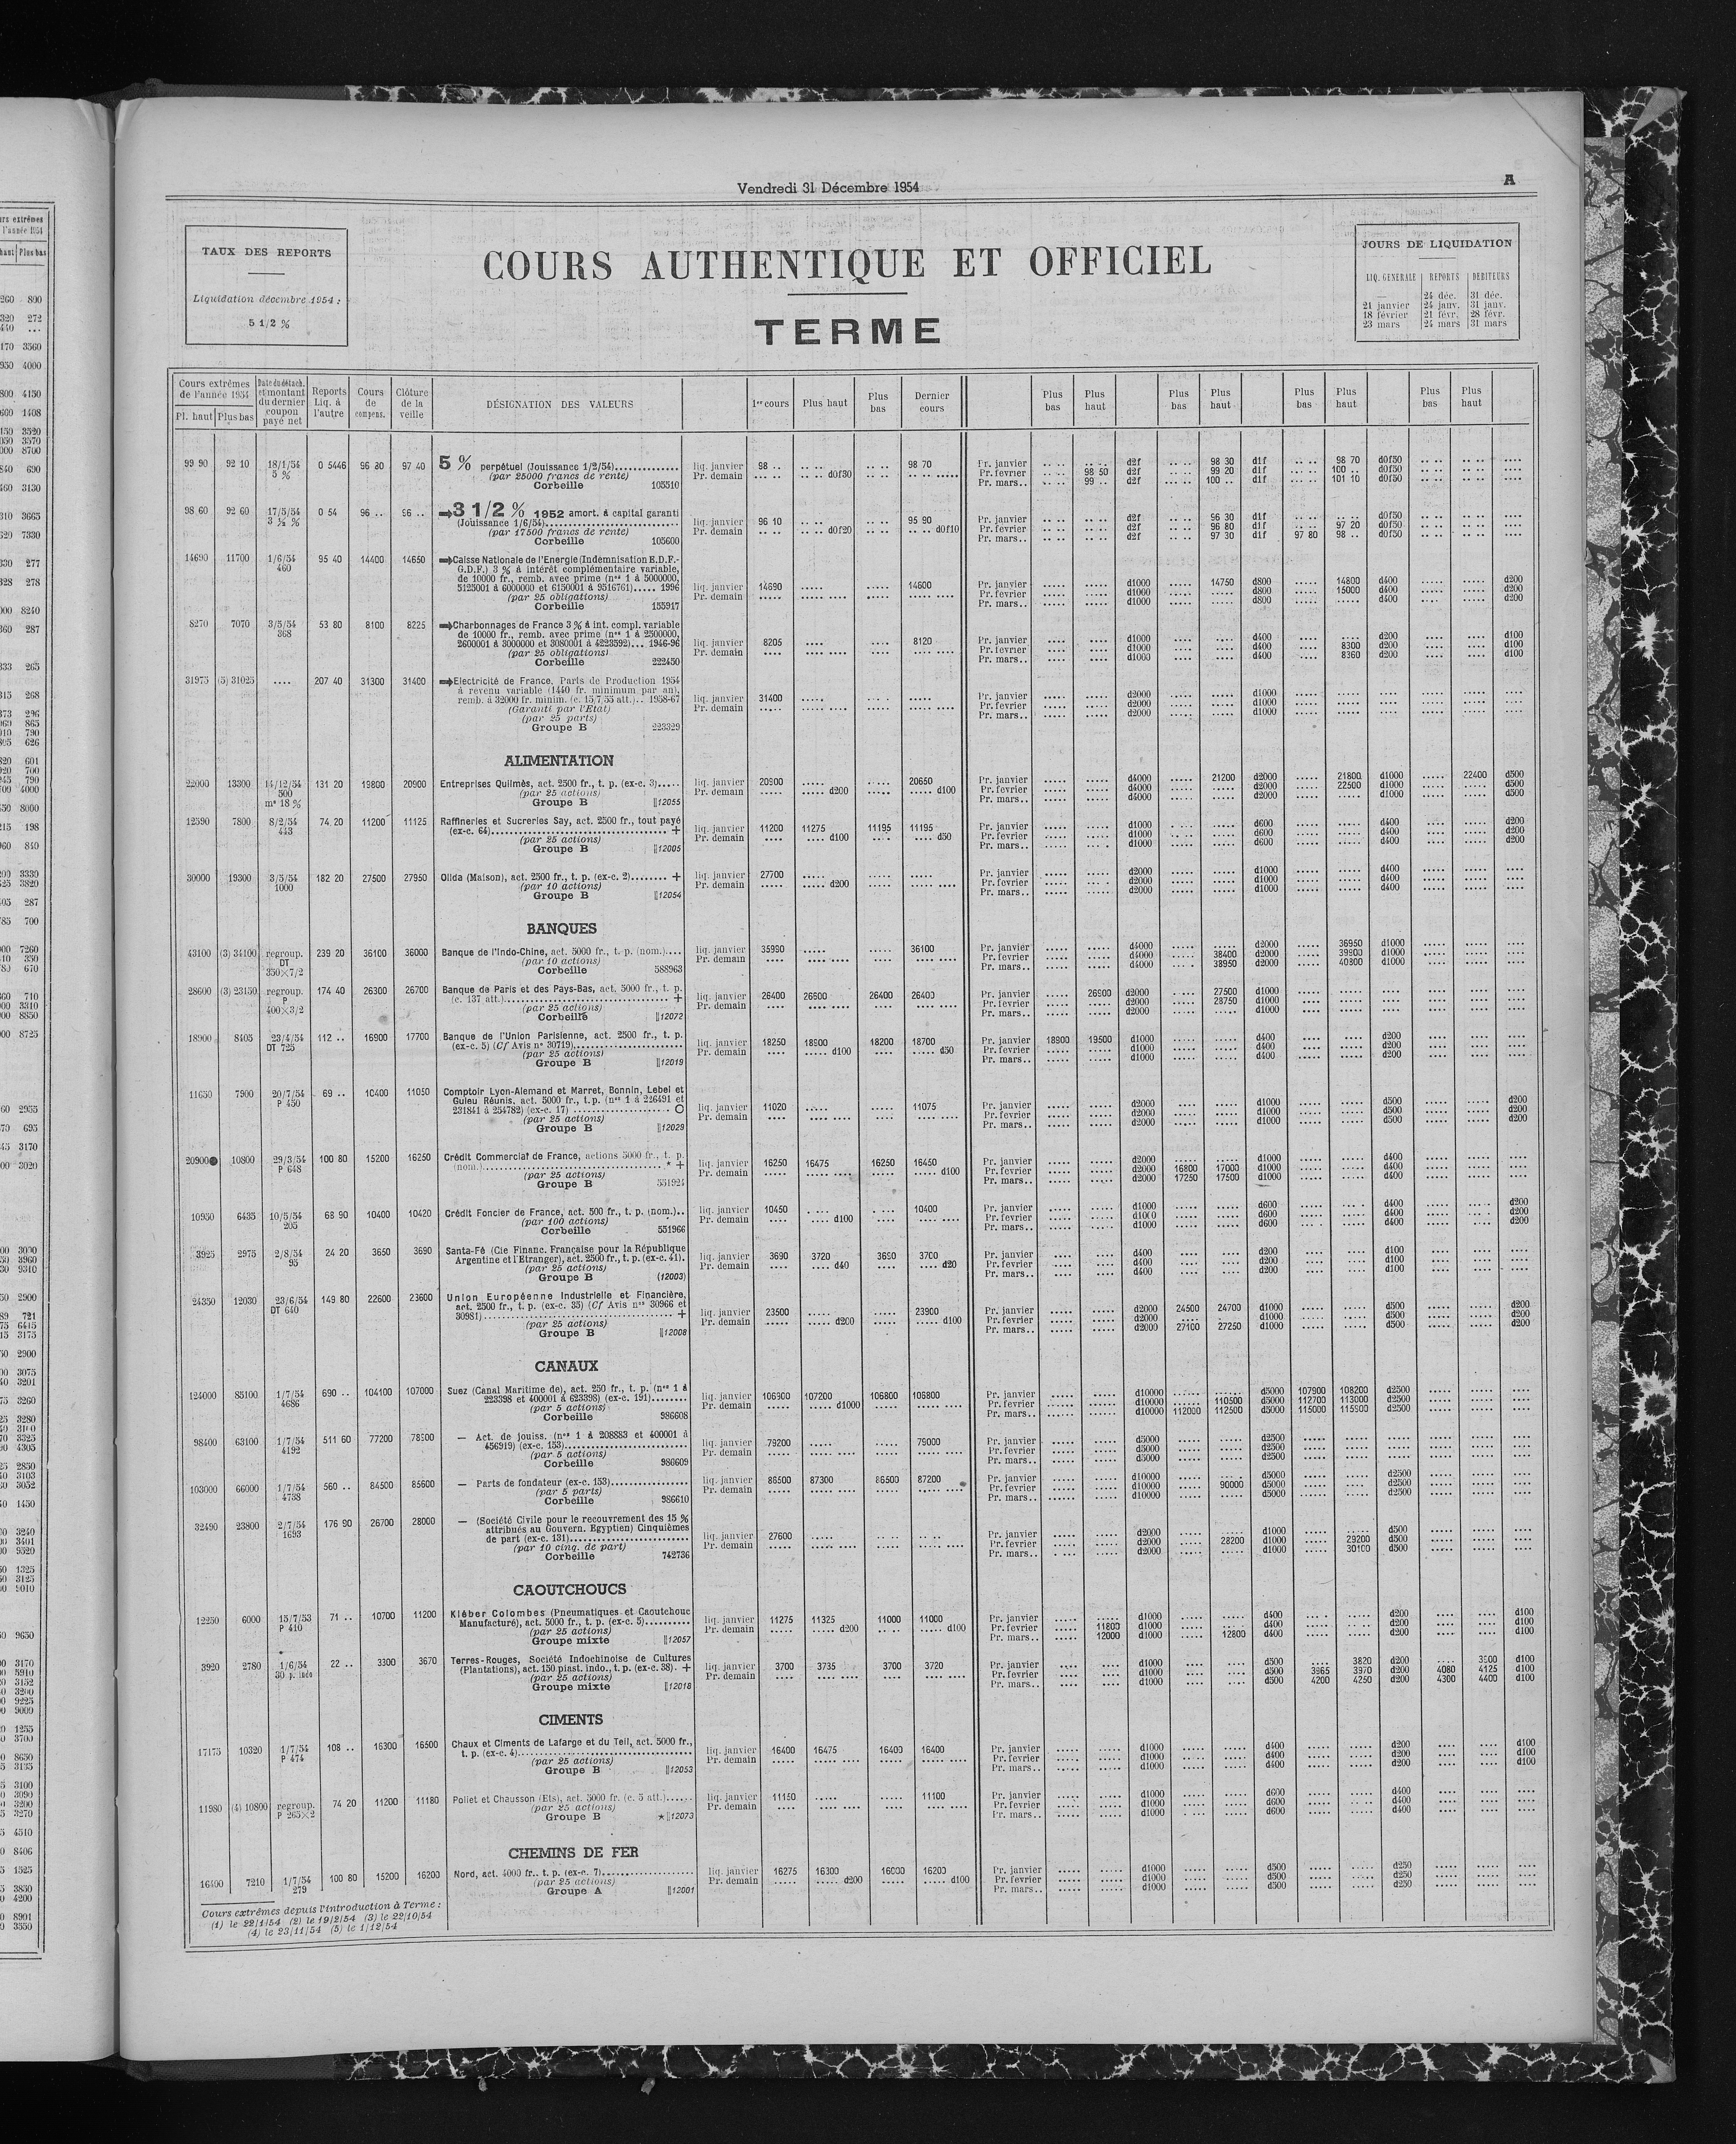 Vendredi 31 Décembre 1954
A
TAUX DES REPORTS
Liquidation décembre 1954 :
5 1/2 %
COURS AUTHENTIQUE ET OFFICIEL
TERME
JOURS DE LIQUIDATION
LIQ. GENERALE REPORTS DEBITEURS
— 24 déc. 31 déc.
21 janvier 24 janv. 31 janv.
18 février 21 févr. 28 févr.
23 mars 24 mars 31 mars
Cours extrêmes de l'année 1954 Pl. haut Plus bas
Date du détach. et montant du dernier coupon payé net
Reports Liq. à l'autre
Cours de compens.
Clôture de la veille
DÉSIGNATION DES VALEURS
1er cours Plus haut Plus bas Dernier cours
Plus bas Plus haut Plus bas Plus haut Plus bas Plus haut Plus bas Plus haut
99 90 92 10 18/1/54 0 5446 96 80 97 40 5 % perpétuel (Jouissance 1/2/54) liq. janvier 98 .. 98 70 Pr. janvier d2f 98 30 d1f 98 70 d0f50
5 % (par 25000 francs de rente) Pr. demain d0f30 Pr. fevrier 98 50 d2f 99 20 d1f 100 .. d0f50
Corbeille 105510 Pr. mars.. 99 .. d2f 100 .. d1f 101 10 d0f50
98 60 92 60 17/5/54 0 54 96 .. 96 .. 3 1/2 % 1952 amort. à capital garanti
3 ½ % (Jouissance 1/6/54) liq. janvier 96 10 95 90 Pr. janvier d2f 96 30 d1f d0f50
(par 17500 francs de rente) Pr. demain d0f20 d0f10 Pr. fevrier d2f 96 80 d1f 97 20 d0f50
Corbeille 105600 Pr. mars.. d2f 97 30 d1f 97 80 98 .. d0f50
14690 11700 1/6/54 95 40 14400 14650 Caisse Nationale de l'Energie (Indemnisation E.D.F.-
460 G.D.F.) 3 % à intérêt complémentaire variable,
de 10000 fr., remb. avec prime (nos 1 à 5000000,
5125001 à 6000000 et 6150001 à 9516761)..... 1996 liq. janvier 14690 14600 Pr. janvier d1000 14750 d800 14800 d400 d200
(par 25 obligations) Pr. demain Pr. fevrier d1000 d800 15000 d400 d200
Corbeille 155917 Pr. mars.. d1000 d800 d400 d200
8270 7070 3/5/54 53 80 8100 8225 Charbonnages de France 3 % à int. compl. variable
368 de 10000 fr., remb. avec prime (nos 1 à 2500000,
2600001 à 3000000 et 3080001 à 4223592)... 1946-96 liq. janvier 8205 8120 Pr. janvier d1000 d400 d200 d100
(par 25 obligations) Pr. demain Pr. fevrier d1000 d400 8300 d200 d100
Corbeille 222450 Pr. mars.. d1000 d400 8360 d200 d100
31975 (5) 31025 .... 207 40 31300 31400 Electricité de France. Parts de Production 1954
à revenu variable (1440 fr. minimum par an),
remb. à 32000 fr. minim. (c. 15/7/55 att.).. 1958-67 liq. janvier 31400 Pr. janvier d2000 d1000
(Garanti par l'Etat) Pr. demain Pr. fevrier d2000 d1000
(par 25 parts) Pr. mars.. d2000 d1000
Groupe B 223329
ALIMENTATION
22000 13300 14/12/54 131 20 19800 20900 Entreprises Quilmès, act. 2500 fr., t. p. (ex-c. 3)..... liq. janvier 20900 20650 Pr. janvier d4000 21200 d2000 21800 d1000 22400 d500
500 (par 25 actions) Pr. demain d200 d100 Pr. fevrier d4000 d2000 22500 d1000 d500
me 18 % Groupe B 12055 Pr. mars.. d4000 d2000 d1000 d500
12590 7800 8/2/54 74 20 11200 11125 Raffineries et Sucreries Say, act. 2500 fr., tout payé
443 (ex-c. 64) + liq. janvier 11200 11275 11195 11195 Pr. janvier d1000 d600 d400 d200
(par 25 actions) Pr. demain d100 d50 Pr. fevrier d1000 d600 d400 d200
Groupe B 12005 Pr. mars.. d1000 d600 d400 d200
30000 19300 3/5/54 182 20 27500 27950 Olida (Maison), act. 2500 fr., t. p. (ex-c. 2) + liq. janvier 27700 Pr. janvier d2000 d1000 d400
1000 (par 10 actions) Pr. demain d200 Pr. fevrier d2000 d1000 d400
Groupe B 12054 Pr. mars.. d2000 d1000 d400
BANQUES
43100 (3) 34100 regroup. 239 20 36100 36000 Banque de l'Indo-Chine, act. 5000 fr., t. p. (nom.).... liq. janvier 35990 36100 Pr. janvier d4000 d2000 36950 d1000
DT (par 10 actions) Pr. demain Pr. fevrier d4000 38400 d2000 39900 d1000
350×7/2 Corbeille 588963 Pr. mars.. d4000 38950 d2000 40300 d1000
28600 (3) 23150 regroup. 174 40 26300 26700 Banque de Paris et des Pays-Bas, act. 5000 fr., t. p.
P (c. 137 att.) + liq. janvier 26400 26900 26400 26400 Pr. janvier 26900 d2000 27500 d1000
400×3/2 (par 25 actions) Pr. demain Pr. fevrier d2000 28750 d1000
Corbeille 12072 Pr. mars.. d2000 d1000
18900 8405 23/4/54 112 .. 16900 17700 Banque de l'Union Parisienne, act. 2500 fr., t. p.
DT 725 (ex-c. 5) (Cf Avis no 30719) liq. janvier 18250 18900 18200 18700 Pr. janvier 18900 19500 d1000 d400 d200
(par 25 actions) Pr. demain d100 d50 Pr. fevrier d1000 d400 d200
Groupe B 12019 Pr. mars.. d1000 d400 d200
11650 7900 20/7/54 69 .. 10400 11050 Comptoir Lyon-Alemand et Marret, Bonnin, Lebel et
P 450 Guieu Réunis, act. 5000 fr., t.p. (nos 1 à 226491 et
231841 à 254782) (ex-c. 17) O liq. janvier 11020 11075 Pr. janvier d2000 d1000 d500 d200
(par 25 actions) Pr. demain Pr. fevrier d2000 d1000 d500 d200
Groupe B 12029 Pr. mars.. d2000 d1000 d500 d200
20900 10800 29/3/54 100 80 15200 16250 Crédit Commercial de France, actions 5000 fr., t. p.
P 648 (nom.) * + liq. janvier 16250 16475 16250 16450 Pr. janvier d2000 d1000 d400
(par 25 actions) Pr. demain d100 Pr. fevrier d2000 16800 17000 d1000 d400
Groupe B 551924 Pr. mars.. d2000 17250 17500 d1000 d400
10950 6435 10/5/54 68 90 10400 10420 Crédit Foncier de France, act. 500 fr., t. p. (nom.).. liq. janvier 10450 10400 Pr. janvier d1000 d600 d400 d200
205 (par 100 actions) Pr. demain d100 Pr. fevrier d1000 d600 d400 d200
Corbeille 551966 Pr. mars.. d1000 d600 d400 d200
3925 2975 2/8/54 24 20 3650 3690 Santa-Fé (Cie Financ. Française pour la République
95 Argentine et l'Etranger), act. 2500 fr., t. p. (ex-c. 41). liq. janvier 3690 3720 3690 3700 Pr. janvier d400 d200 d100
(par 25 actions) Pr. demain d40 d20 Pr. fevrier d400 d200 d100
Groupe B (12003) Pr. mars.. d400 d200 d100
24350 12030 23/6/54 149 80 22600 23600 Union Européenne Industrielle et Financière,
DT 640 act. 2500 fr., t. p. (ex-c. 35) (Cf Avis nos 30966 et
30981) + liq. janvier 23500 23900 Pr. janvier d2000 24500 24700 d1000 d500 d200
(par 25 actions) Pr. demain d200 d100 Pr. fevrier d2000 d500 d200
Groupe B 12008 Pr. mars.. d2000 27100 27250 d1000 d500 d200
CANAUX
124000 85100 1/7/54 690 .. 104100 107000 Suez (Canal Maritime de), act. 250 fr., t. p. (nos 1 à
4686 223398 et 400001 à 623398) (ex-c. 191) liq. janvier 106900 107200 106800 106800 Pr. janvier d10000 d5000 107900 108200 d2500
(par 5 actions) Pr. demain d1000 Pr. fevrier d10000 110500 d5000 112700 113000 d2500
Corbeille 986608 Pr. mars.. d10000 112000 112500 d5000 115000 115900 d2500
98400 63100 1/7/54 511 60 77200 78500 — Act. de jouiss. (nos 1 à 208883 et 400001 à
4192 456919) (ex-c. 153) liq. janvier 79200 79000 Pr. janvier d5000 d2500
(par 5 actions) Pr. demain Pr. fevrier d5000 d2500
Corbeille 986609 Pr. mars.. d5000 d2500
103000 66000 1/7/54 560 .. 84500 85600 — Parts de fondateur (ex-c. 153) liq. janvier 86500 87300 86500 87200 Pr. janvier d10000 d5000 d2500
4738 (par 5 parts) Pr. demain Pr. fevrier d10000 90000 d5000 d2500
Corbeille 986610 Pr. mars.. d10000 d5000 d2500
32490 23800 2/7/54 176 90 26700 28000 — (Société Civile pour le recouvrement des 15 %
1693 attribués au Gouvern. Egyptien) Cinquièmes
de part (ex-c. 131) liq. janvier 27600 Pr. janvier d2000 d1000 d500
(par 10 cinq. de part) Pr. demain Pr. fevrier d2000 28200 d1000 29200 d500
Corbeille 742736 Pr. mars.. d2000 d1000 30100 d500
CAOUTCHOUCS
12250 6000 15/7/53 71 .. 10700 11200 Kléber Colombes (Pneumatiques et Caoutchouc
P 410 Manufacturé), act. 5000 fr., t. p. (ex-c. 5) liq. janvier 11275 11325 11000 11000 Pr. janvier d1000 d400 d200 d100
(par 25 actions) Pr. demain d200 d100 Pr. fevrier 11800 d1000 d400 d200 d100
Groupe mixte 12057 Pr. mars.. 12000 d1000 12800 d400 d200 d100
3920 2780 1/6/54 22 .. 3300 3670 Terres-Rouges, Société Indochinoise de Cultures
30 p. indo (Plantations), act. 150 piast. indo., t. p. (ex-c. 38). + liq. janvier 3700 3735 3700 3720 Pr. janvier d1000 d500 3820 d200 3900 d100
(par 25 actions) Pr. demain Pr. fevrier d1000 d500 3965 3970 d200 4080 4125 d100
Groupe mixte 12018 Pr. mars.. d1000 d500 4200 4250 d200 4300 4400 d100
CIMENTS
17175 10320 1/7/54 108 .. 16300 16500 Chaux et Ciments de Lafarge et du Teil, act. 5000 fr.,
P 474 t. p. (ex-c. 4) liq. janvier 16400 16475 16400 16400 Pr. janvier d1000 d400 d200 d100
(par 25 actions) Pr. demain Pr. fevrier d1000 d400 d200 d100
Groupe B 12053 Pr. mars.. d1000 d400 d200 d100
11980 (4) 10800 regroup. 74 20 11200 11180 Poliet et Chausson (Ets), act. 5000 fr. (c. 5 att.) liq. janvier 11150 11100 Pr. janvier d1000 d600 d400
P 265×2 (par 25 actions) Pr. demain Pr. fevrier d1000 d600 d400
Groupe B ★ 12073 Pr. mars.. d1000 d600 d400
CHEMINS DE FER
16400 7210 1/7/54 100 80 15200 16200 Nord, act. 4000 fr., t. p. (ex-c. 7) liq. janvier 16275 16300 16000 16200 Pr. janvier d1000 d500 d250
279 (par 25 actions) Pr. demain d200 d100 Pr. fevrier d1000 d500 d250
Groupe A 12001 Pr. mars.. d1000 d500 d250
Cours extrêmes depuis l'introduction à Terme :
(1) le 22/1/54 (2) le 19/2/54 (3) le 22/10/54
(4) le 23/11/54 (5) le 1/12/54